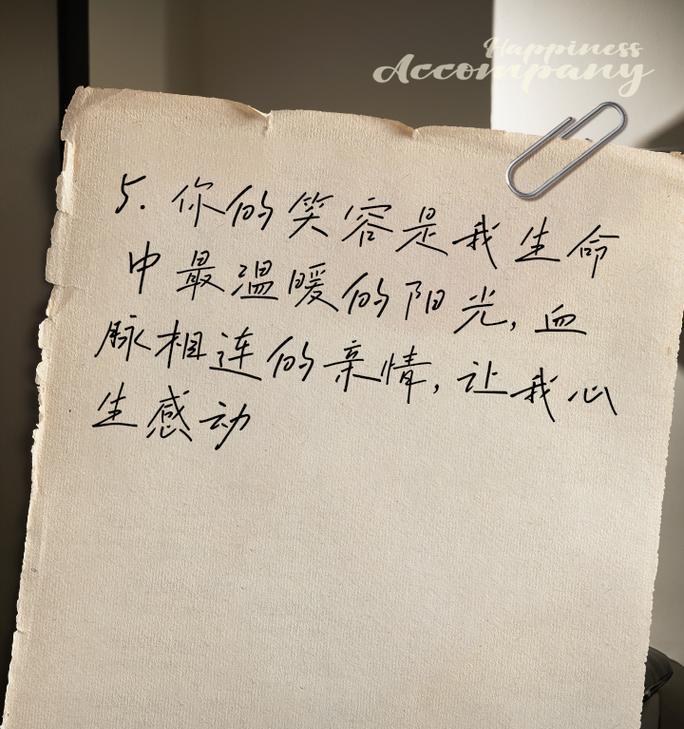 Happiness
Accompany
5. 你的笑容是我生命
中最温暖的阳光,血
脉相连的亲情,让我心
生感动